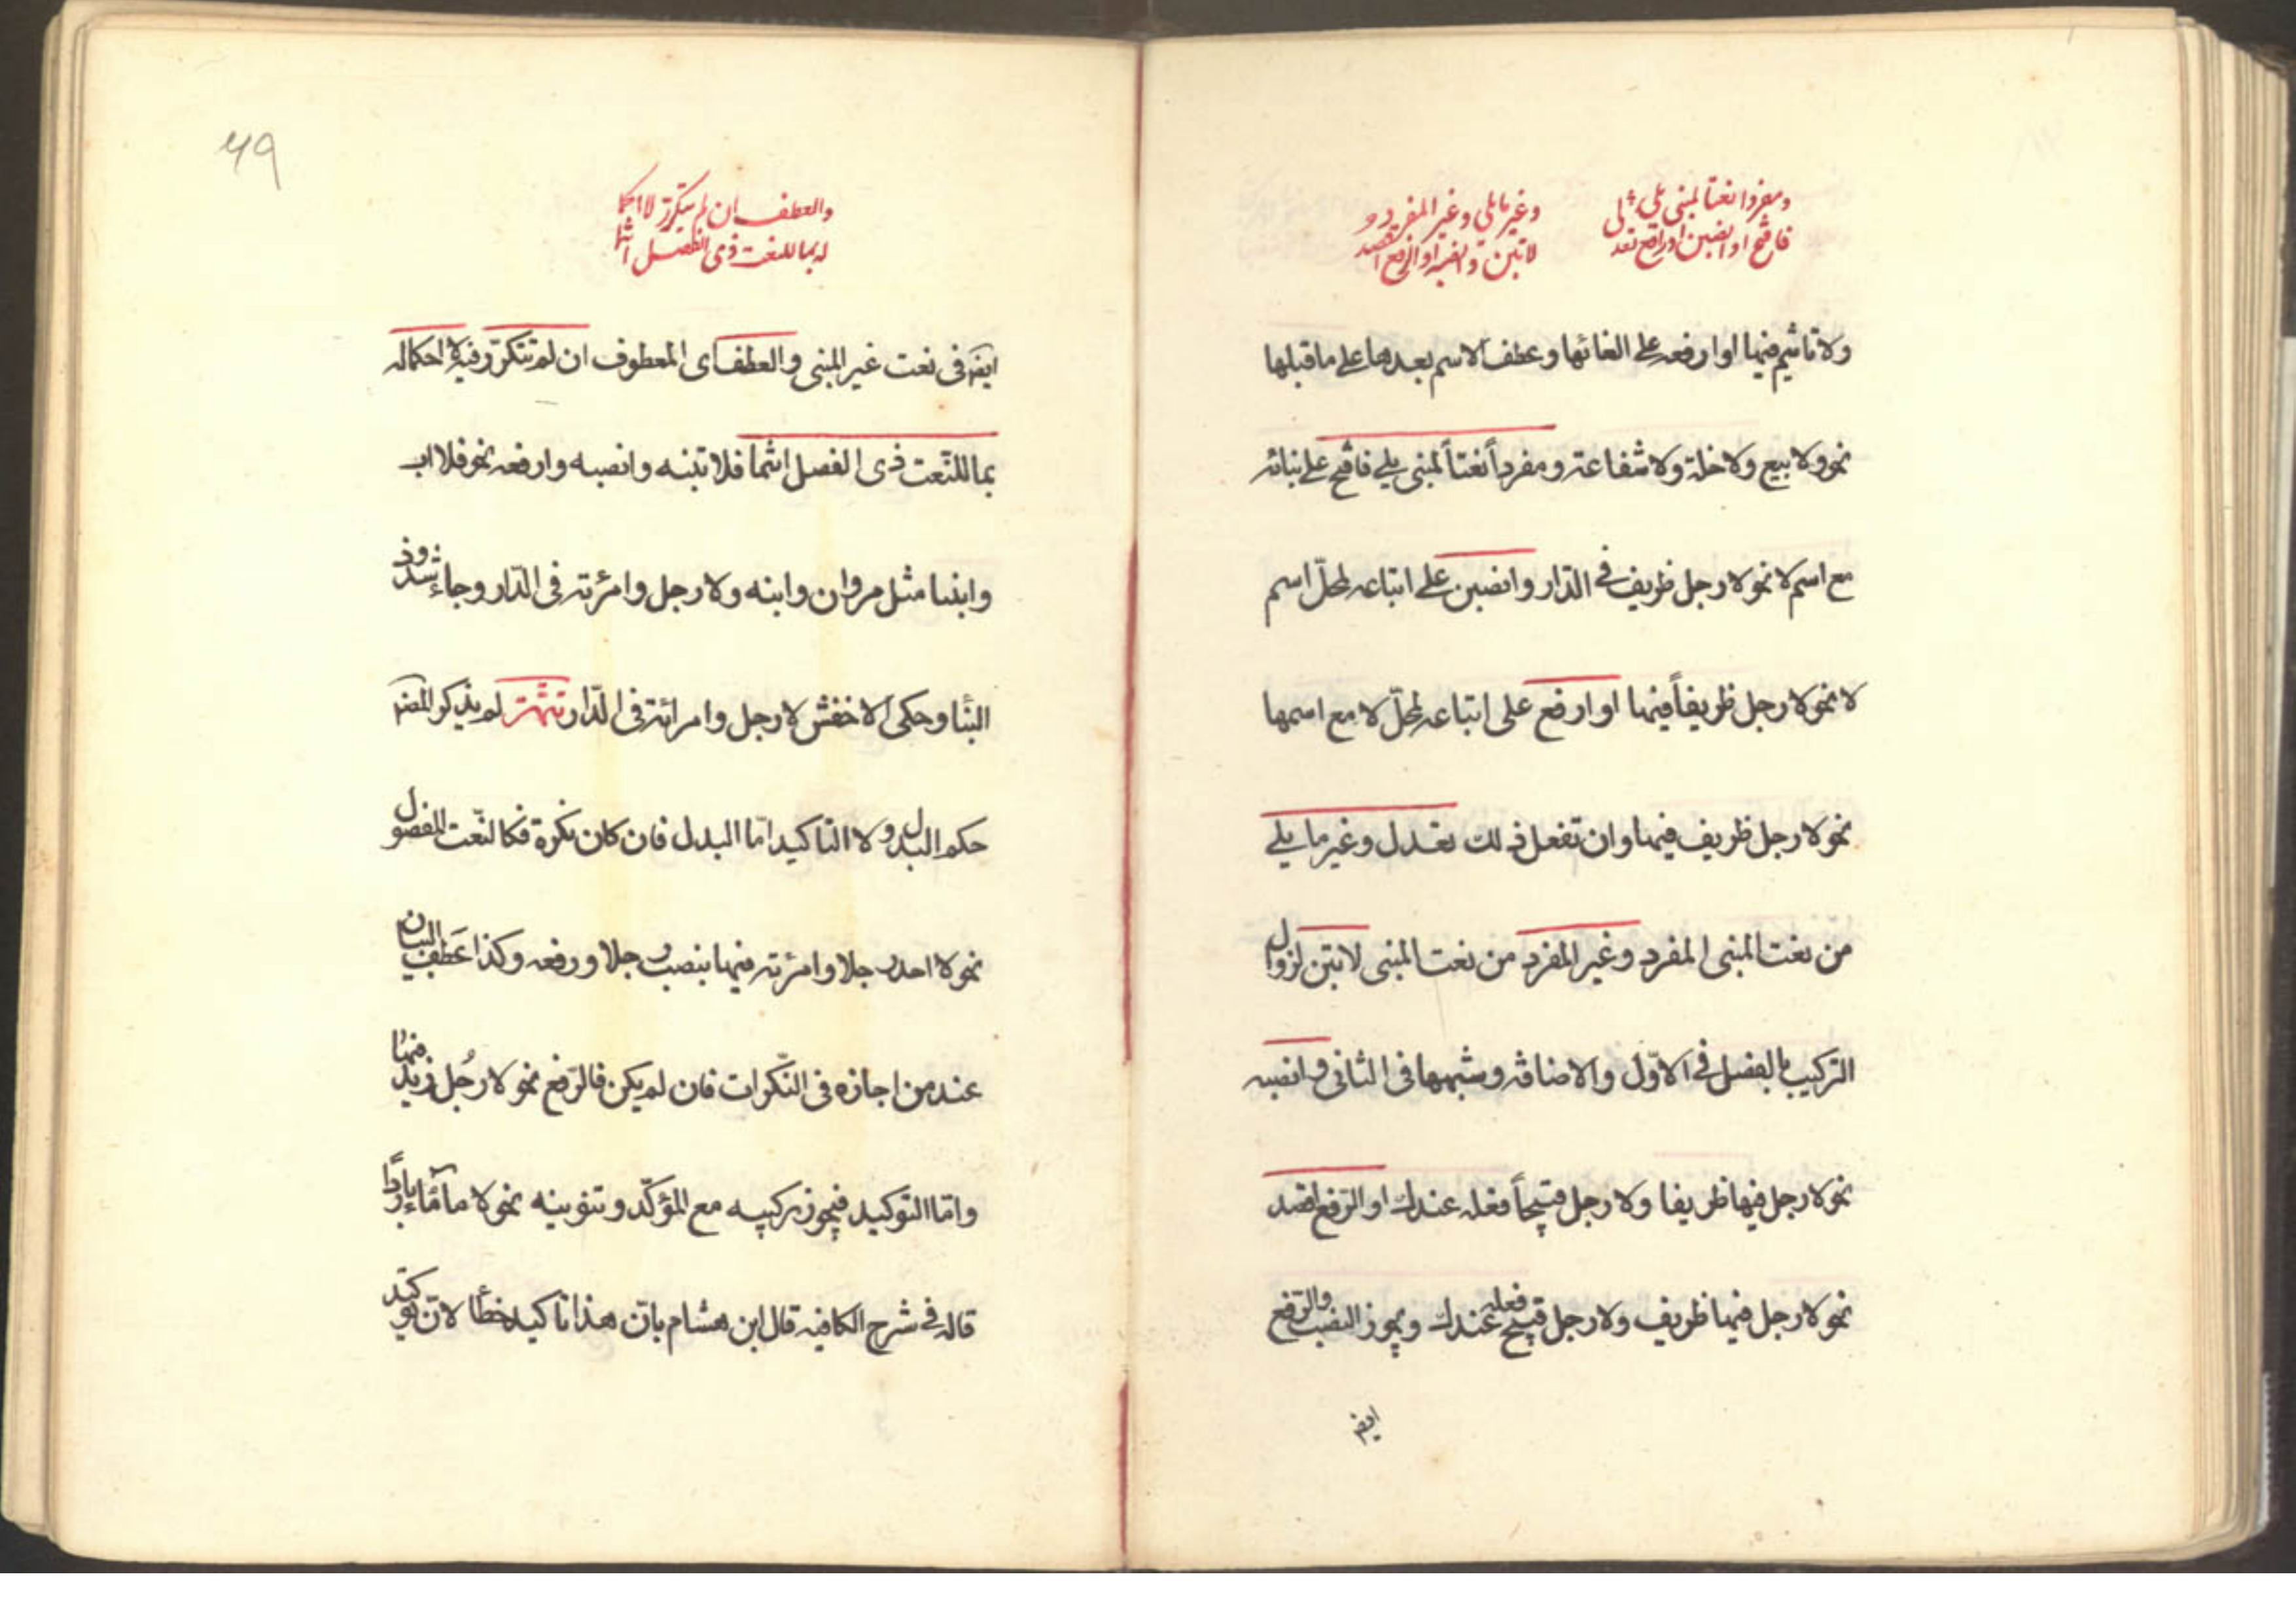 ومفردا نعتا لمبنى يلى
فافتح او انصبن او ارفع تعدل
وغير ما يلى وغير المفرد
لا تبن وانصبه او الرفع اقصد
ولا تاثيم فيها او ارفعه على الغائها وعطف الاسم بعدها على ما قبلها
نحو ولا بيع ولا خلة ولا شفاعة ومفرداً نعتاً لمبنى يلى فافتح على بنائه
مع اسم لا نحو لا رجل ظريف فى الدّار وانصبن على اتباعه لمحلّ اسم
لا نحو لا رجل ظريفاً فيها او ارفع على اتباعه لمحلّ لا مع اسمها
نحو لا رجل ظريف فيها وان تفعل ذلك تعدل وغير ما يلى
من نعت المبنى المفرد وغير المفرد من نعت المبنى لا تبن لزوال
التركيب بالفصل فى الاوّل والاضافة وشبهها فى الثانى وانصبه
نحو لا رجل فيها ظريفا ولا رجل قبيحاً فعله عندك او الرّفع اقصد
نحو لا رجل فيها ظريف ولا رجل قبيح فعله عندك ويجوز النصب والرّفع
ايضا
والعطف ان لم يتكرر لا احكما
له بما للنعت ذى الفصل انتما
ايضا فى نعت غير المبنى والعطف اى المعطوف ان لم تتكرّر فيه لا احكما له
بما للنّعت ذى الفصل انتما فلا تبنه وانصبه وارفعه نحو فلا اب
وابنا مثل مروان وابنه ولا رجل وامرئة فى الدّار وجاء شذوذ
البنا وحكى الاخفش لا رجل وامرائة فى الدّار تتمّة لم يذكر المصنف
حكم البدل ولا التاكيد امّا البدل فان كان نكرة فكالنّعت المفصول
نحو لا احد رجلا وامرئة فيها بنصب رجلا ورفعه وكذا عطف البيان
عند من اجازه فى النّكرات فان لم يكن فالرّفع نحو لا رجُل زيد فيها
وامّا التوكيد فيجوز تركيبه مع المؤكّد وتنوينه نحو لا ماء ماء باردًا
قاله فى شرح الكافيه قال ابن هشام بانّ هذا تاكيد خطأ لانّ توكيد